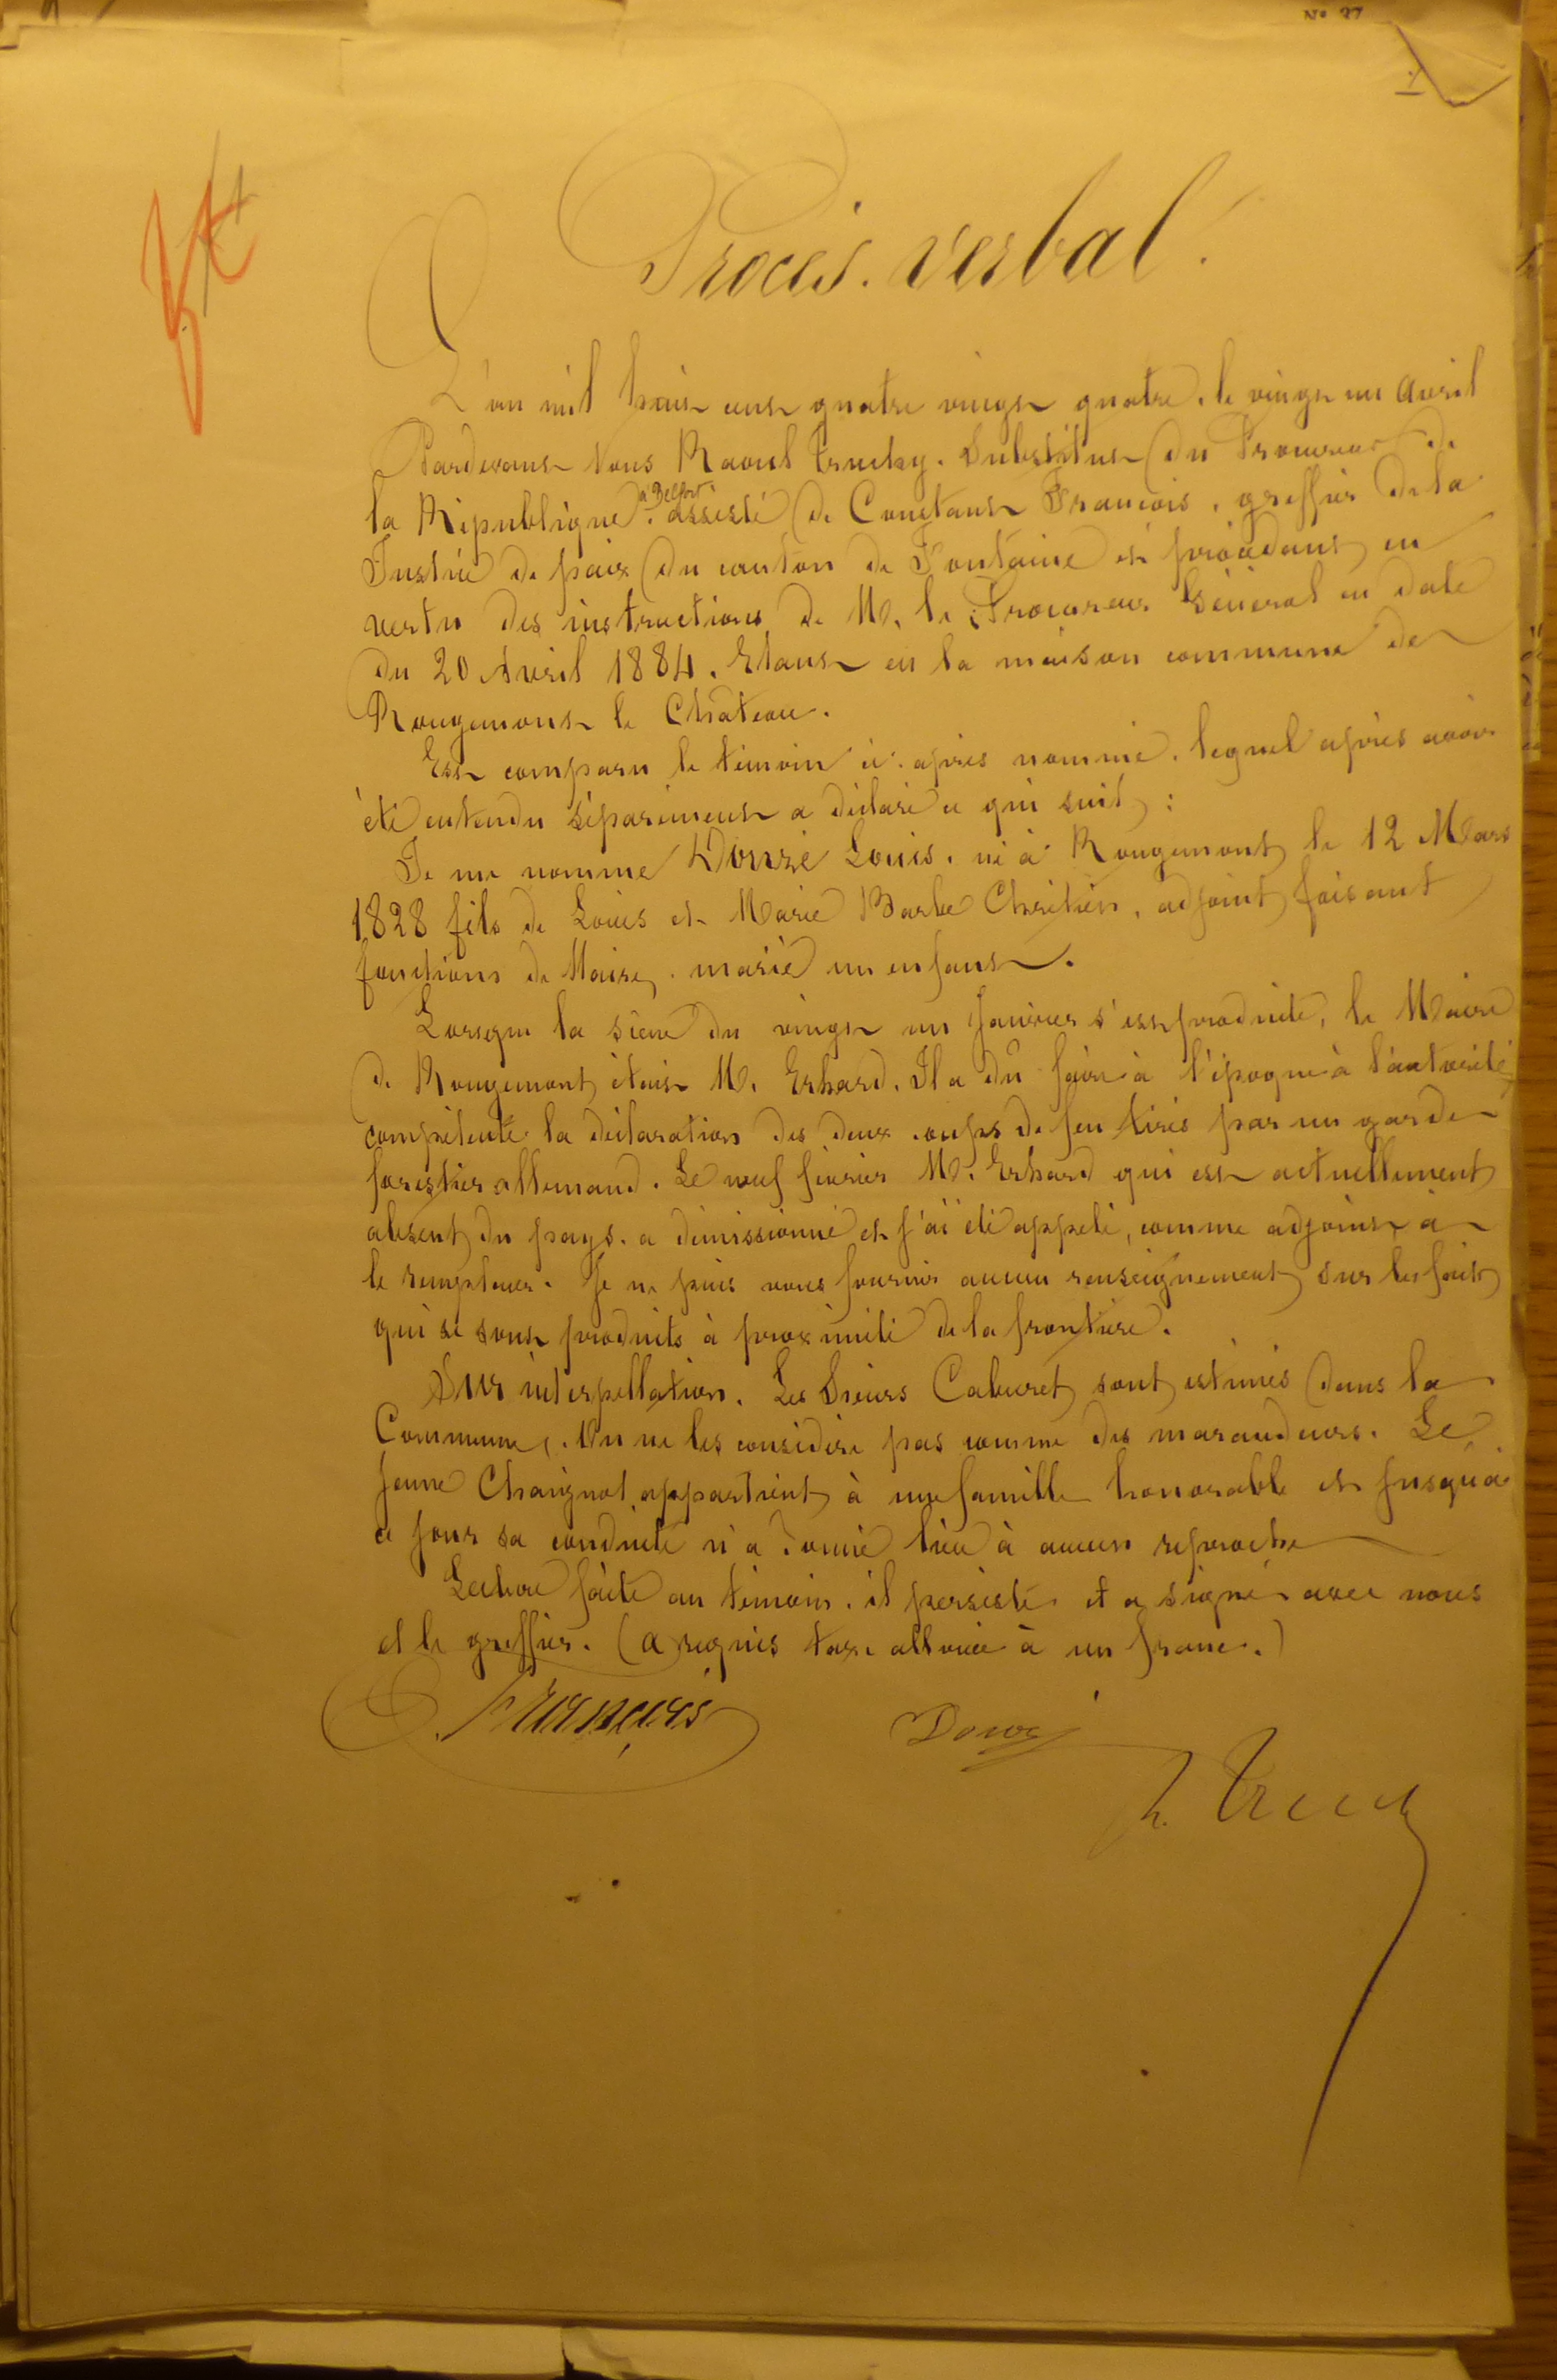 Procès-verbal.
L'an mil huit cent quatre vingt quatre, le vingt un avril
Pardevant Nous Raoul Truchy, Substitut du Procureur de
la République à Belfort, assisté de Constant François, greffier de la
Justice de paix du canton de Fontaine et procédant en
vertu des instructions de M. le Procureur Général en date
du 20 Avril 1884. Etant en la maison commune de
Rougemont le Château.
Est comparu le témoin ci-après nommé, lequel après avoir
été entendu séparément a déclaré ce qui suit :
Je me nomme Donzé Louis, né à Rougemont le 12 Mars
1828 fils de Louis et Marie Barbe Chrétien, adjoint faisant
fonctions de Maire, marié un enfant.
Lorsque la scène du vingt un Janvier s'est produite, le Maire
de Rougemont était M. Erhard. Il a dû faire à l'époque à l'autorité
compétente la déclaration des deux coups de feu tirés par un garde
forestier allemand. Le neuf février M. Erhard qui est actuellement
absent du pays, a démissionné et j'ai été appelé, comme adjoint à
le remplacer. Je ne puis vous fournir aucun renseignement sur les faits
qui se sont produits à proximité de la frontière.
Sur interpellation. Les Sieurs Caburet sont estimés dans la
Commune, On ne les considère pas comme des maraudeurs. Le
jeune Chaignot appartient à une famille honorable et jusqu'à
ce jour sa conduite n'a donné lieu à aucun reproche
Lecture faite au témoin, il persiste et a signé avec nous
et le greffier. (a requis taxe allouée à un franc.)
C. François
Donzé
R. Truchy